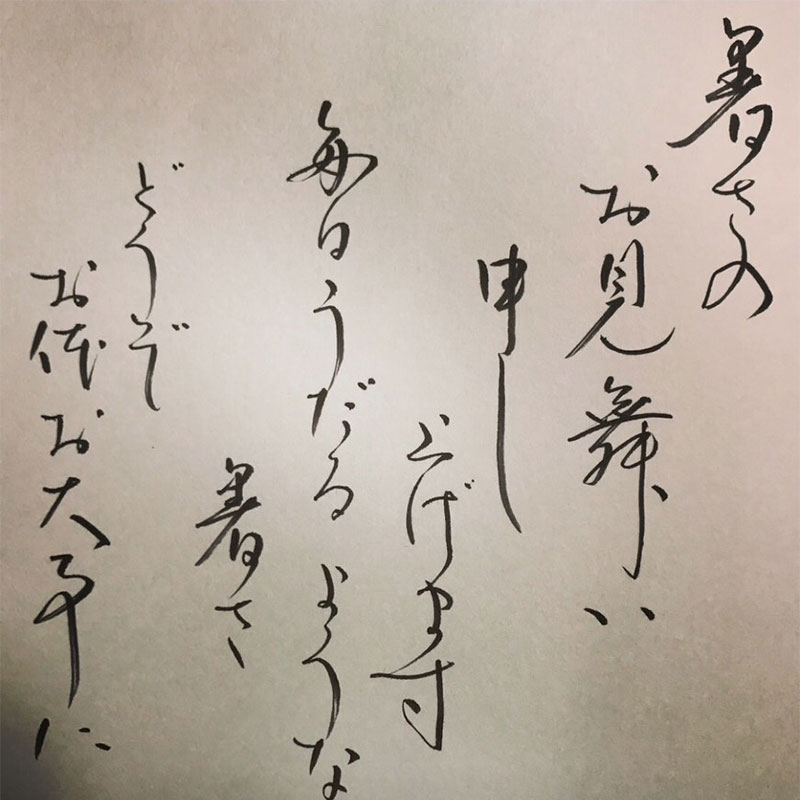 暑さの
お見舞い
申し
上げます
毎日うだるような
暑さ
どうぞ
お体お大事に